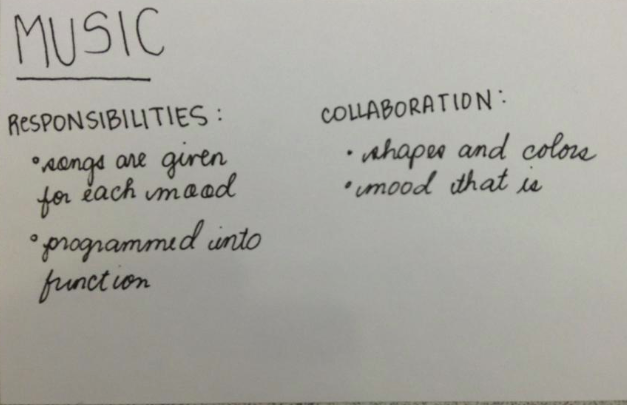 MUSIC
RESPONSIBILITIES:
• songs are given
for each mood
• programmed into
function
COLLABORATION:
• shapes and colors
• mood that is